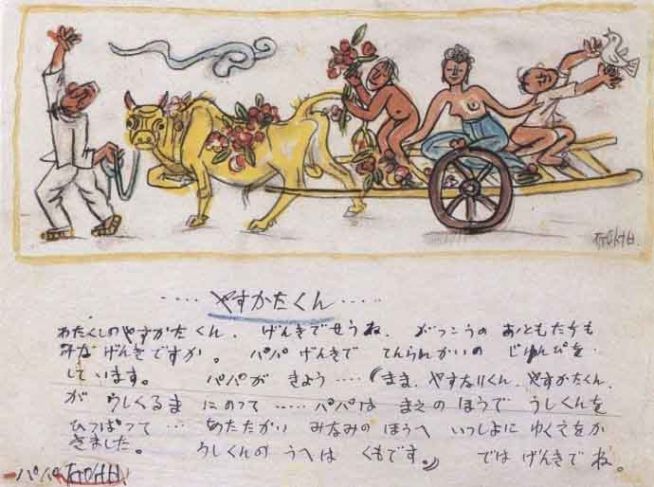 ....やすかたくん....
わたくしのやすかたくん、げんきでせうね、がつこうの おともだちも
みな げんきですか。パパ げんきで てんらんかいの じゅんびを
しています。 パパが きよう....(まま、やすなりくん、やすかたくん
が うしくるま にのって ..... パパは まえの ほうで うしくんを
ひっぱって ... あたたかい みなみの ほうへ いっしよに ゆくえをか
きました。 うしくんの うへは くもです。) では げんきで ね。
ーパパ